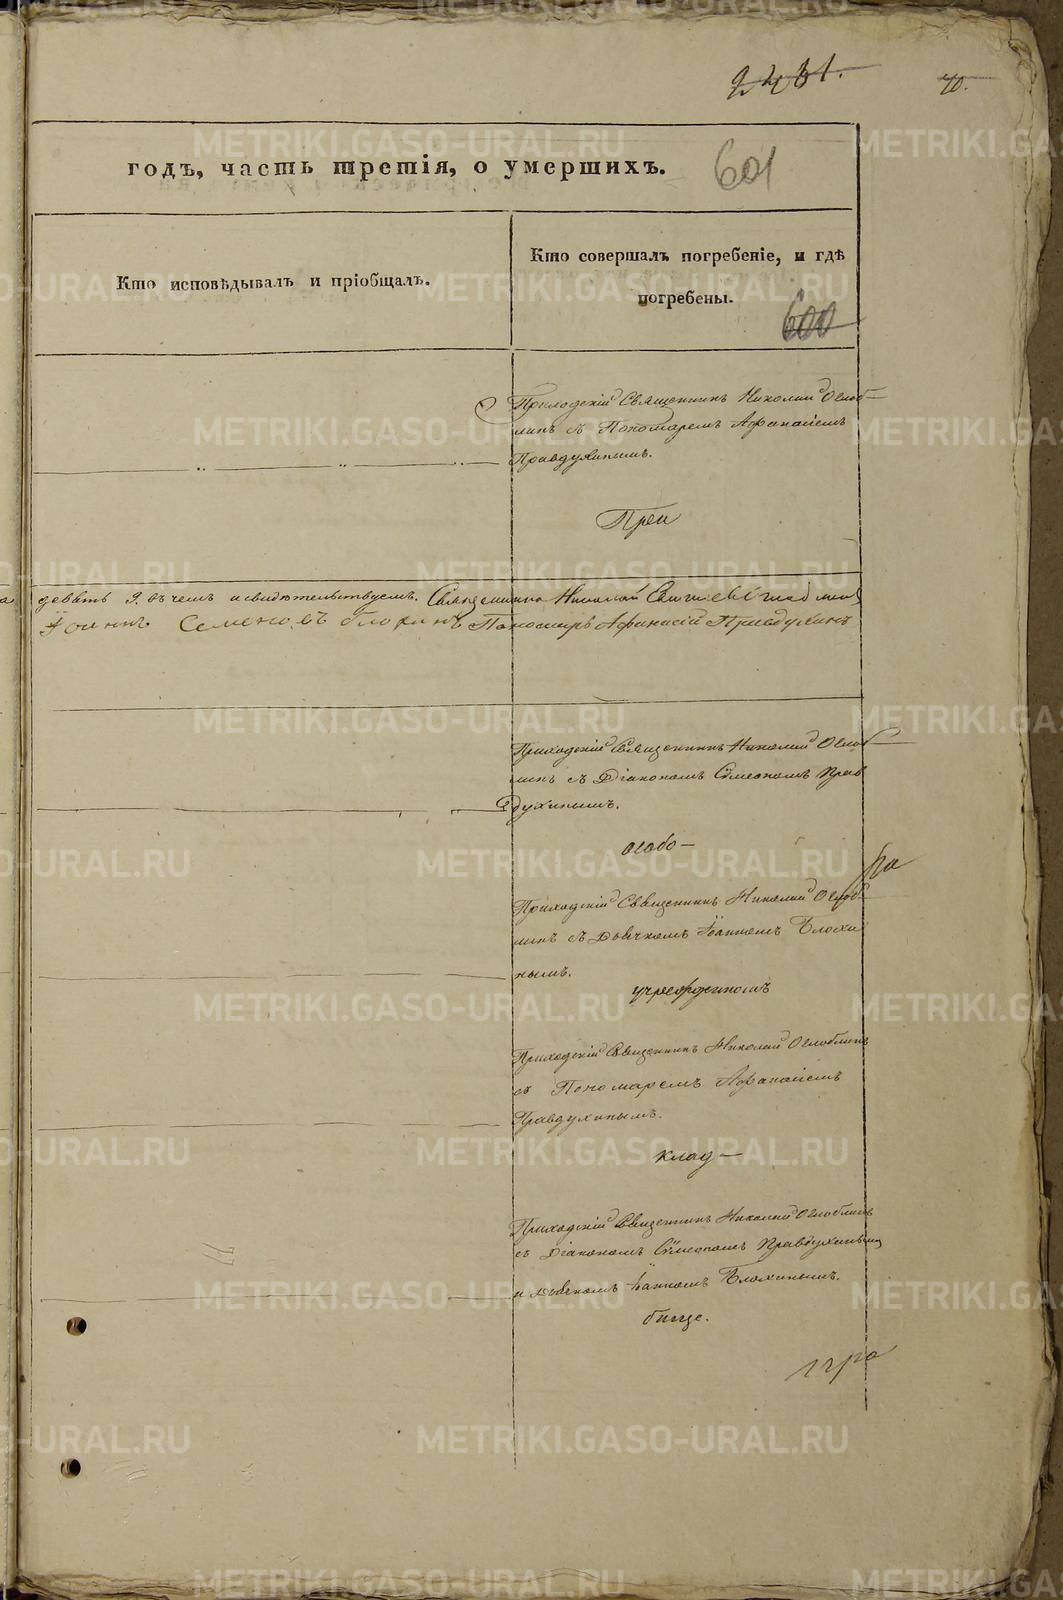 2461.
70.
годъ, часть третія, о умершихъ.
601
Кто исповѣдывалъ и пріобщалъ.
Кто совершалъ погребеніе, и гдѣ
погребены.
600
Приходскій Священникъ Николай Оглоб-
линъ съ Пономаремъ Афанасіемъ
Правдухинымъ.
При
девять 9. въ чемъ и свидѣтельствуемъ. Священникъ Николай Оглоблинъ
Іоаннъ Семеновъ Блохинъ Пономарь Афанасій Правдухинъ
Приходскій Священникъ Николай Оглоб-
линъ съ Діакономъ Сѵмеономъ Прав
духинымъ.
особо-
Приходскій Священникъ Николай Оглоб-
линъ съ Дьячкомъ Іоанномъ Блохи
нымъ.
учрежденномъ
Приходскій Священникъ Николай Оглоблинъ
съ Пономаремъ Афанасіемъ
Правдухинымъ.
клад-
Приходскій Священникъ Николай Оглоблинъ
съ Діакономъ Сѵмеономъ Правдухинымъ
и Дьячкомъ Іоанномъ Блохинымъ.
бище.
METRIKI.GASO-URAL.RU